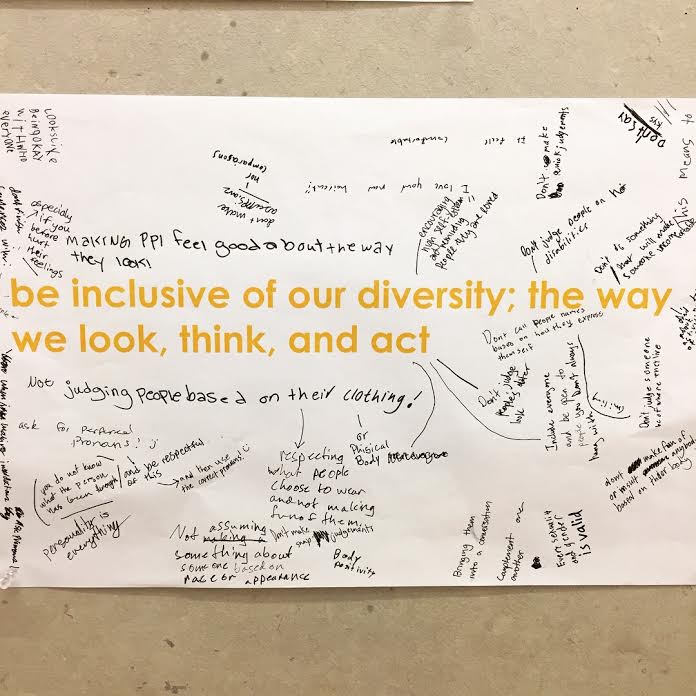 LOOKS LIKE
BEING OKAY
WITH WHO
everyone
don't make
assumptions
nor
comparisons
It feels comfortable
I love your new haircut!
encouraging
high self-esteem
and reminding
people they are loved
Don't make
quick judgements
Don't say
kys
This means to
especially
if you
before
hurt
their
feelings
MAKING PPl feel good about the way
they look!
Don't judge people on their
disabilities
Don't do something
that will make
someone uncomfortable
be inclusive of our diversity; the way
we look, think, and act
Don't call people names
based on how they express
themself
Not judging people based on their clothing!
or
Phisical
Body
Don't
judge
peoples
look
Include everyone
and be open to
people you don't always
hang with
(smiling)
Don't judge someone
ask for
Pronouns!
you do not know
what the person
has been through
and be respectful
of this
and then use
the correct pronouns!
personality is
everything
respecting
what people
choose to wear
and not making
fun of them.
Not assuming
something about
someone based on
race or appearance
Don't make
snap judgements
Body
Positivity
Bringing them
into a conversation
Complement one
another
Every sexuality
and gender
is valid
don't make fun of
or mout anyone
based on their body